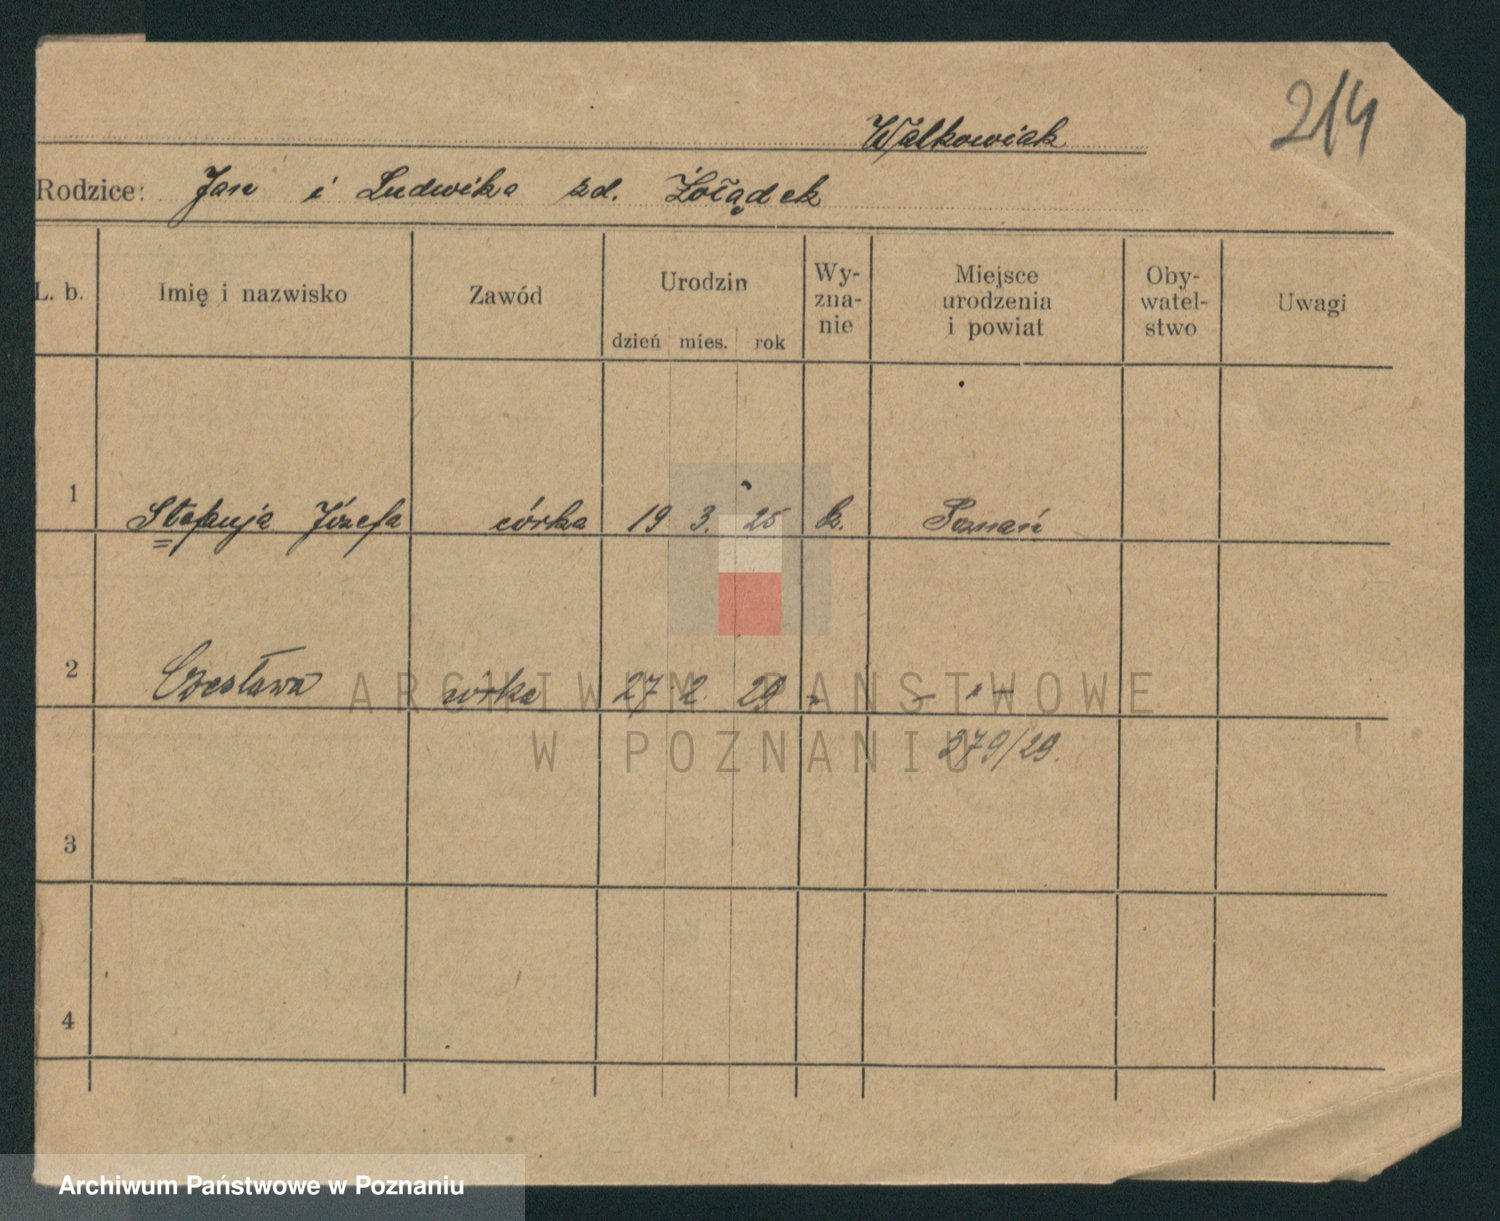 214
Walkowiak
Rodzice: Jan i Ludwika zd. Żołądek
L. b. Imię i nazwisko Zawód Urodzin dzień mies. rok Wy-zna-nie Miejsce urodzenia i powiat Oby-watel-stwo Uwagi
1 Stefanja Józefa córka 19 3. 25 k. Poznań
2 Czesława córka 27 2. 29 - - " -
379/29.
3
4
ARCHIWUM PAŃSTWOWE
W POZNANIU
Archiwum Państwowe w Poznaniu